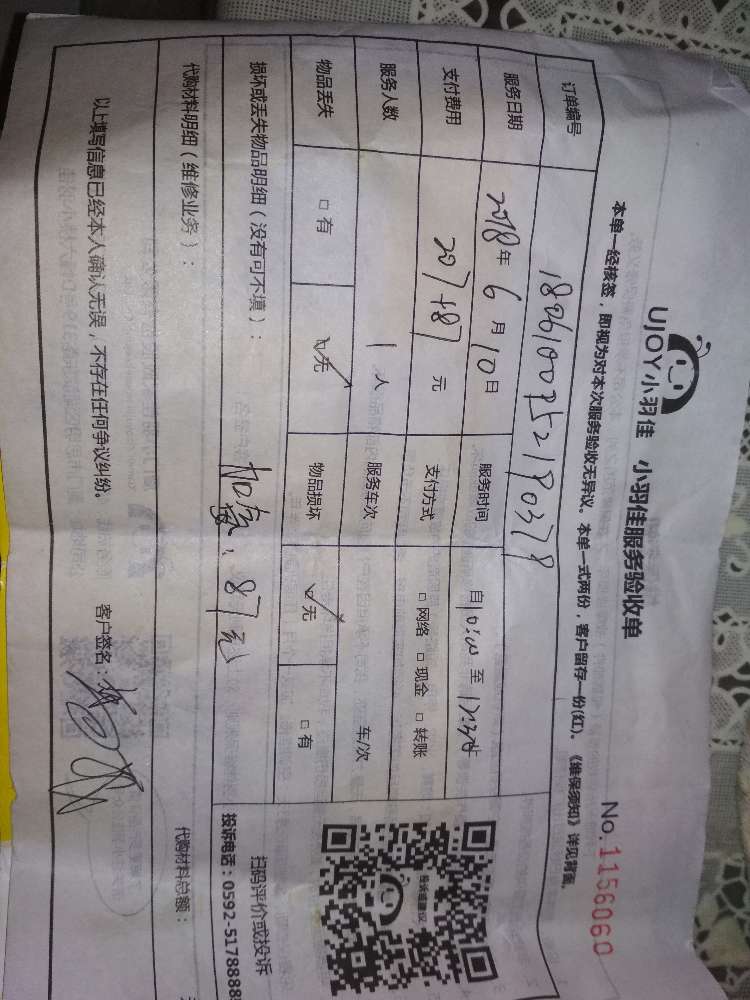 UJOY小羽佳 小羽佳服务验收单
No.1156060
本单一经核签，即视为对本次服务验收无异议。本单一式两份，客户留存一份(红)。《维保须知》详见背面。
订单编号
服务日期 2018年6月10日 服务时间 自10:00至12:30止
支付费用 207+87元 支付方式 □网络 □现金 □转账
服务人数 1人 服务车次 车/次
物品丢失 □有 □无 物品损坏 □无 □有
损坏或丢失物品明细（没有可不填）：
87元
代购材料明细（维修业务）：
代购材料总额：
以上填写信息已经本人确认无误，不存在任何争议纠纷。
客户签名：
投诉或建议
扫码评价或投诉
投诉电话：0592-5178888